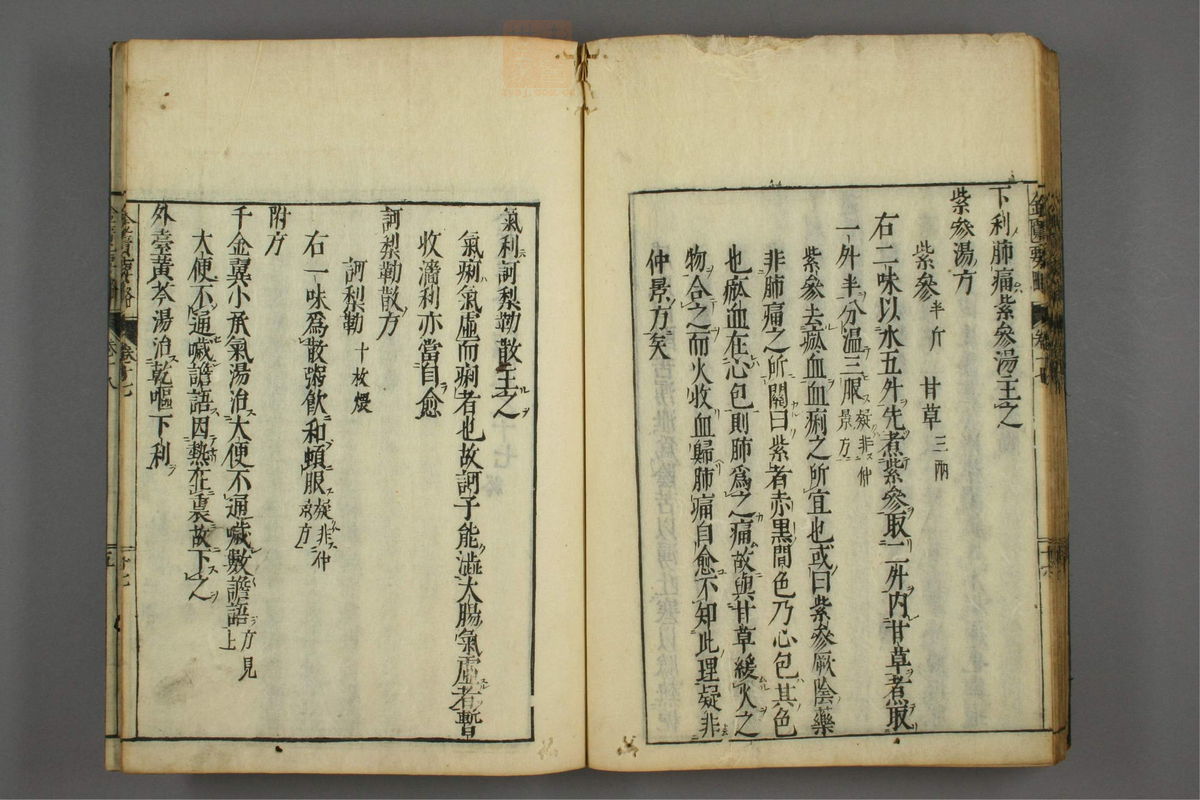 下利肺痛紫參湯主之
紫參湯方
紫參半斤 甘草三兩
右二味以水五升先煮紫參取二升內甘草煮取
一升半分溫三服疑非仲景方
紫參去瘀血血痢之所宜也或曰紫參厥陰藥
非肺痛之所關曰紫者赤黑間色乃心包其色
也瘀血在心包則肺爲之痛故與甘草緩火之
物合之而火收血歸肺痛自愈不知此理疑非
仲景方矣
氣利訶梨勒散主之
氣痢氣虛而痢者也故訶子能澁大腸氣虛者暫
收瀒利亦當自愈
訶梨勒散方
訶梨勒十枚煨
右一味爲散粥飲和頓服疑非仲景方
附方
千金翼小承氣湯治大便不通噦數譫語方見上
大便不通噦譫語因熱在裏故下之
外臺黃芩湯治乾嘔下利